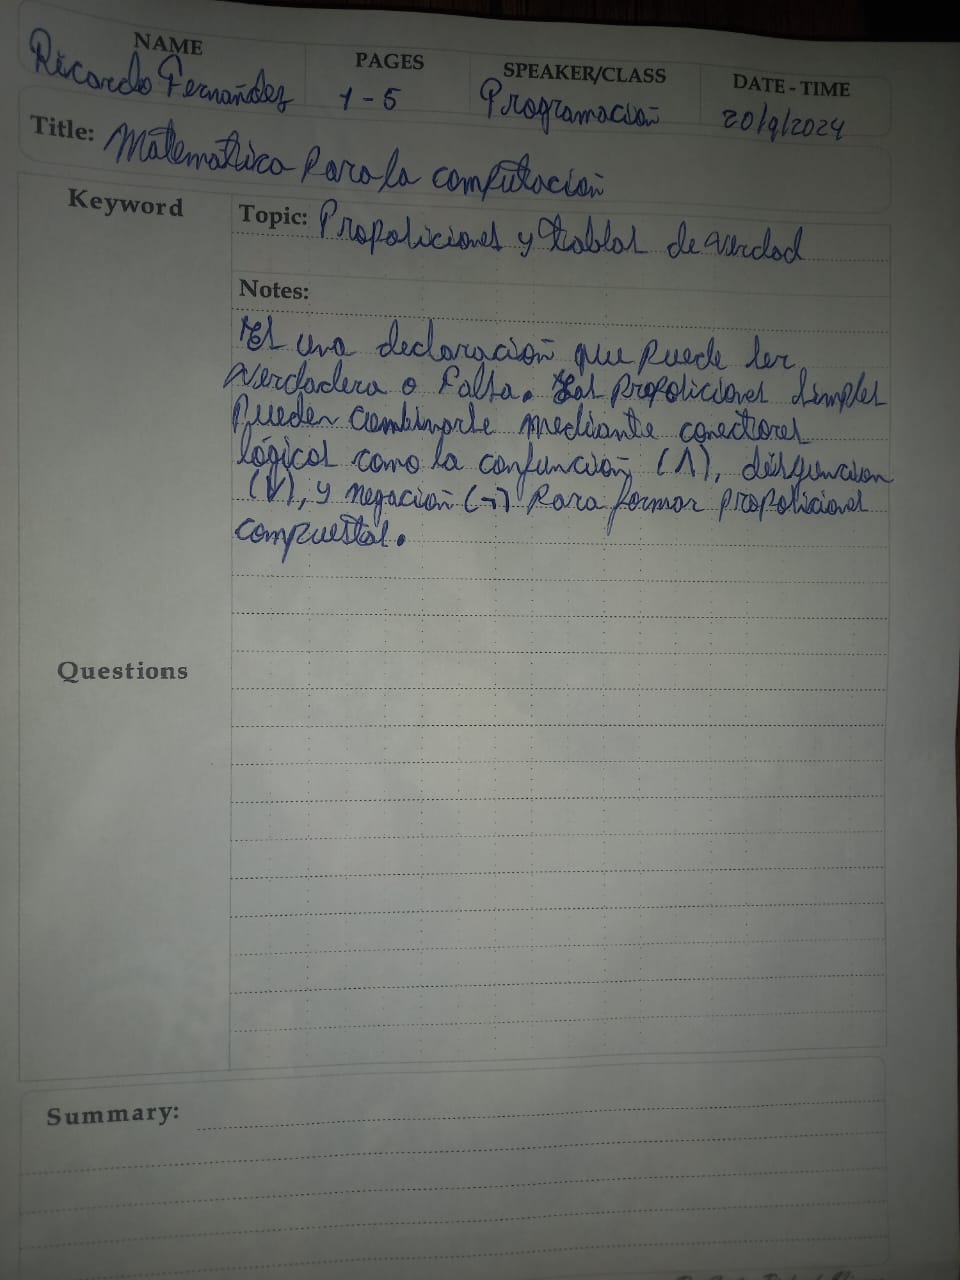 NAME PAGES SPEAKER/CLASS DATE - TIME
Ricardo Fernández 1-5 Programación 20/9/2024
Title: Matematica para la computación
Keyword
Topic: Proposiciones y tablas de verdad
Notes:
Es una declaración que puede ser
verdadera o falsa. Las proposiciones simples
pueden combinarse mediante conectores
lógicos como la conjunción (Λ), disyuncion
(V), y negación (¬) para formar proposiciones
compuestas.
Questions
Summary: